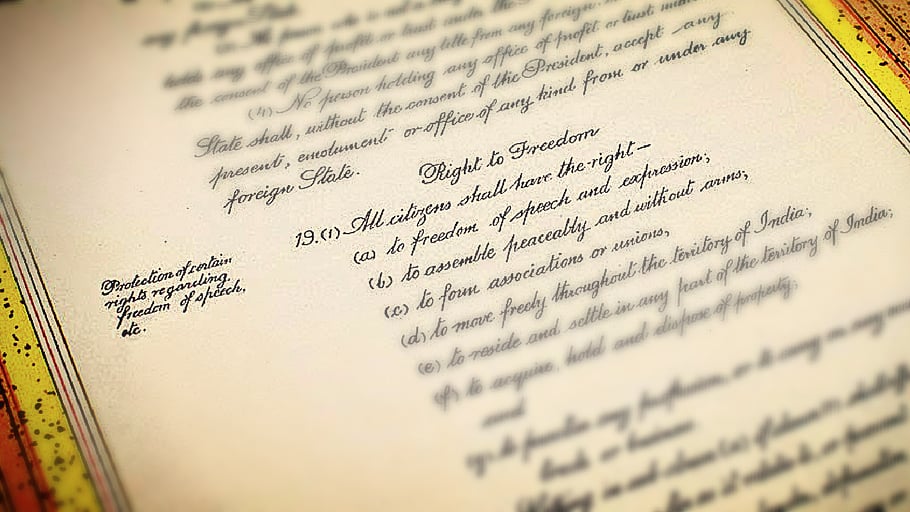 any foreign State.
holds any office of profit or trust under the
the consent of the President any title from any foreign
(4) No person holding any office of profit or trust under
State shall, without the consent of the President, accept any
present, emolument or office of any kind from or under any
foreign State.
Right to Freedom
19.(1) All citizens shall have the right—
(a) to freedom of speech and expression;
(b) to assemble peaceably and without arms;
(c) to form associations or unions;
(d) to move freely throughout the territory of India;
(e) to reside and settle in any part of the territory of India;
(f) to acquire, hold and dispose of property;
and
(g) to practise any profession, or to carry on any
trade or business.
Protection of certain
rights regarding
freedom of speech,
etc.